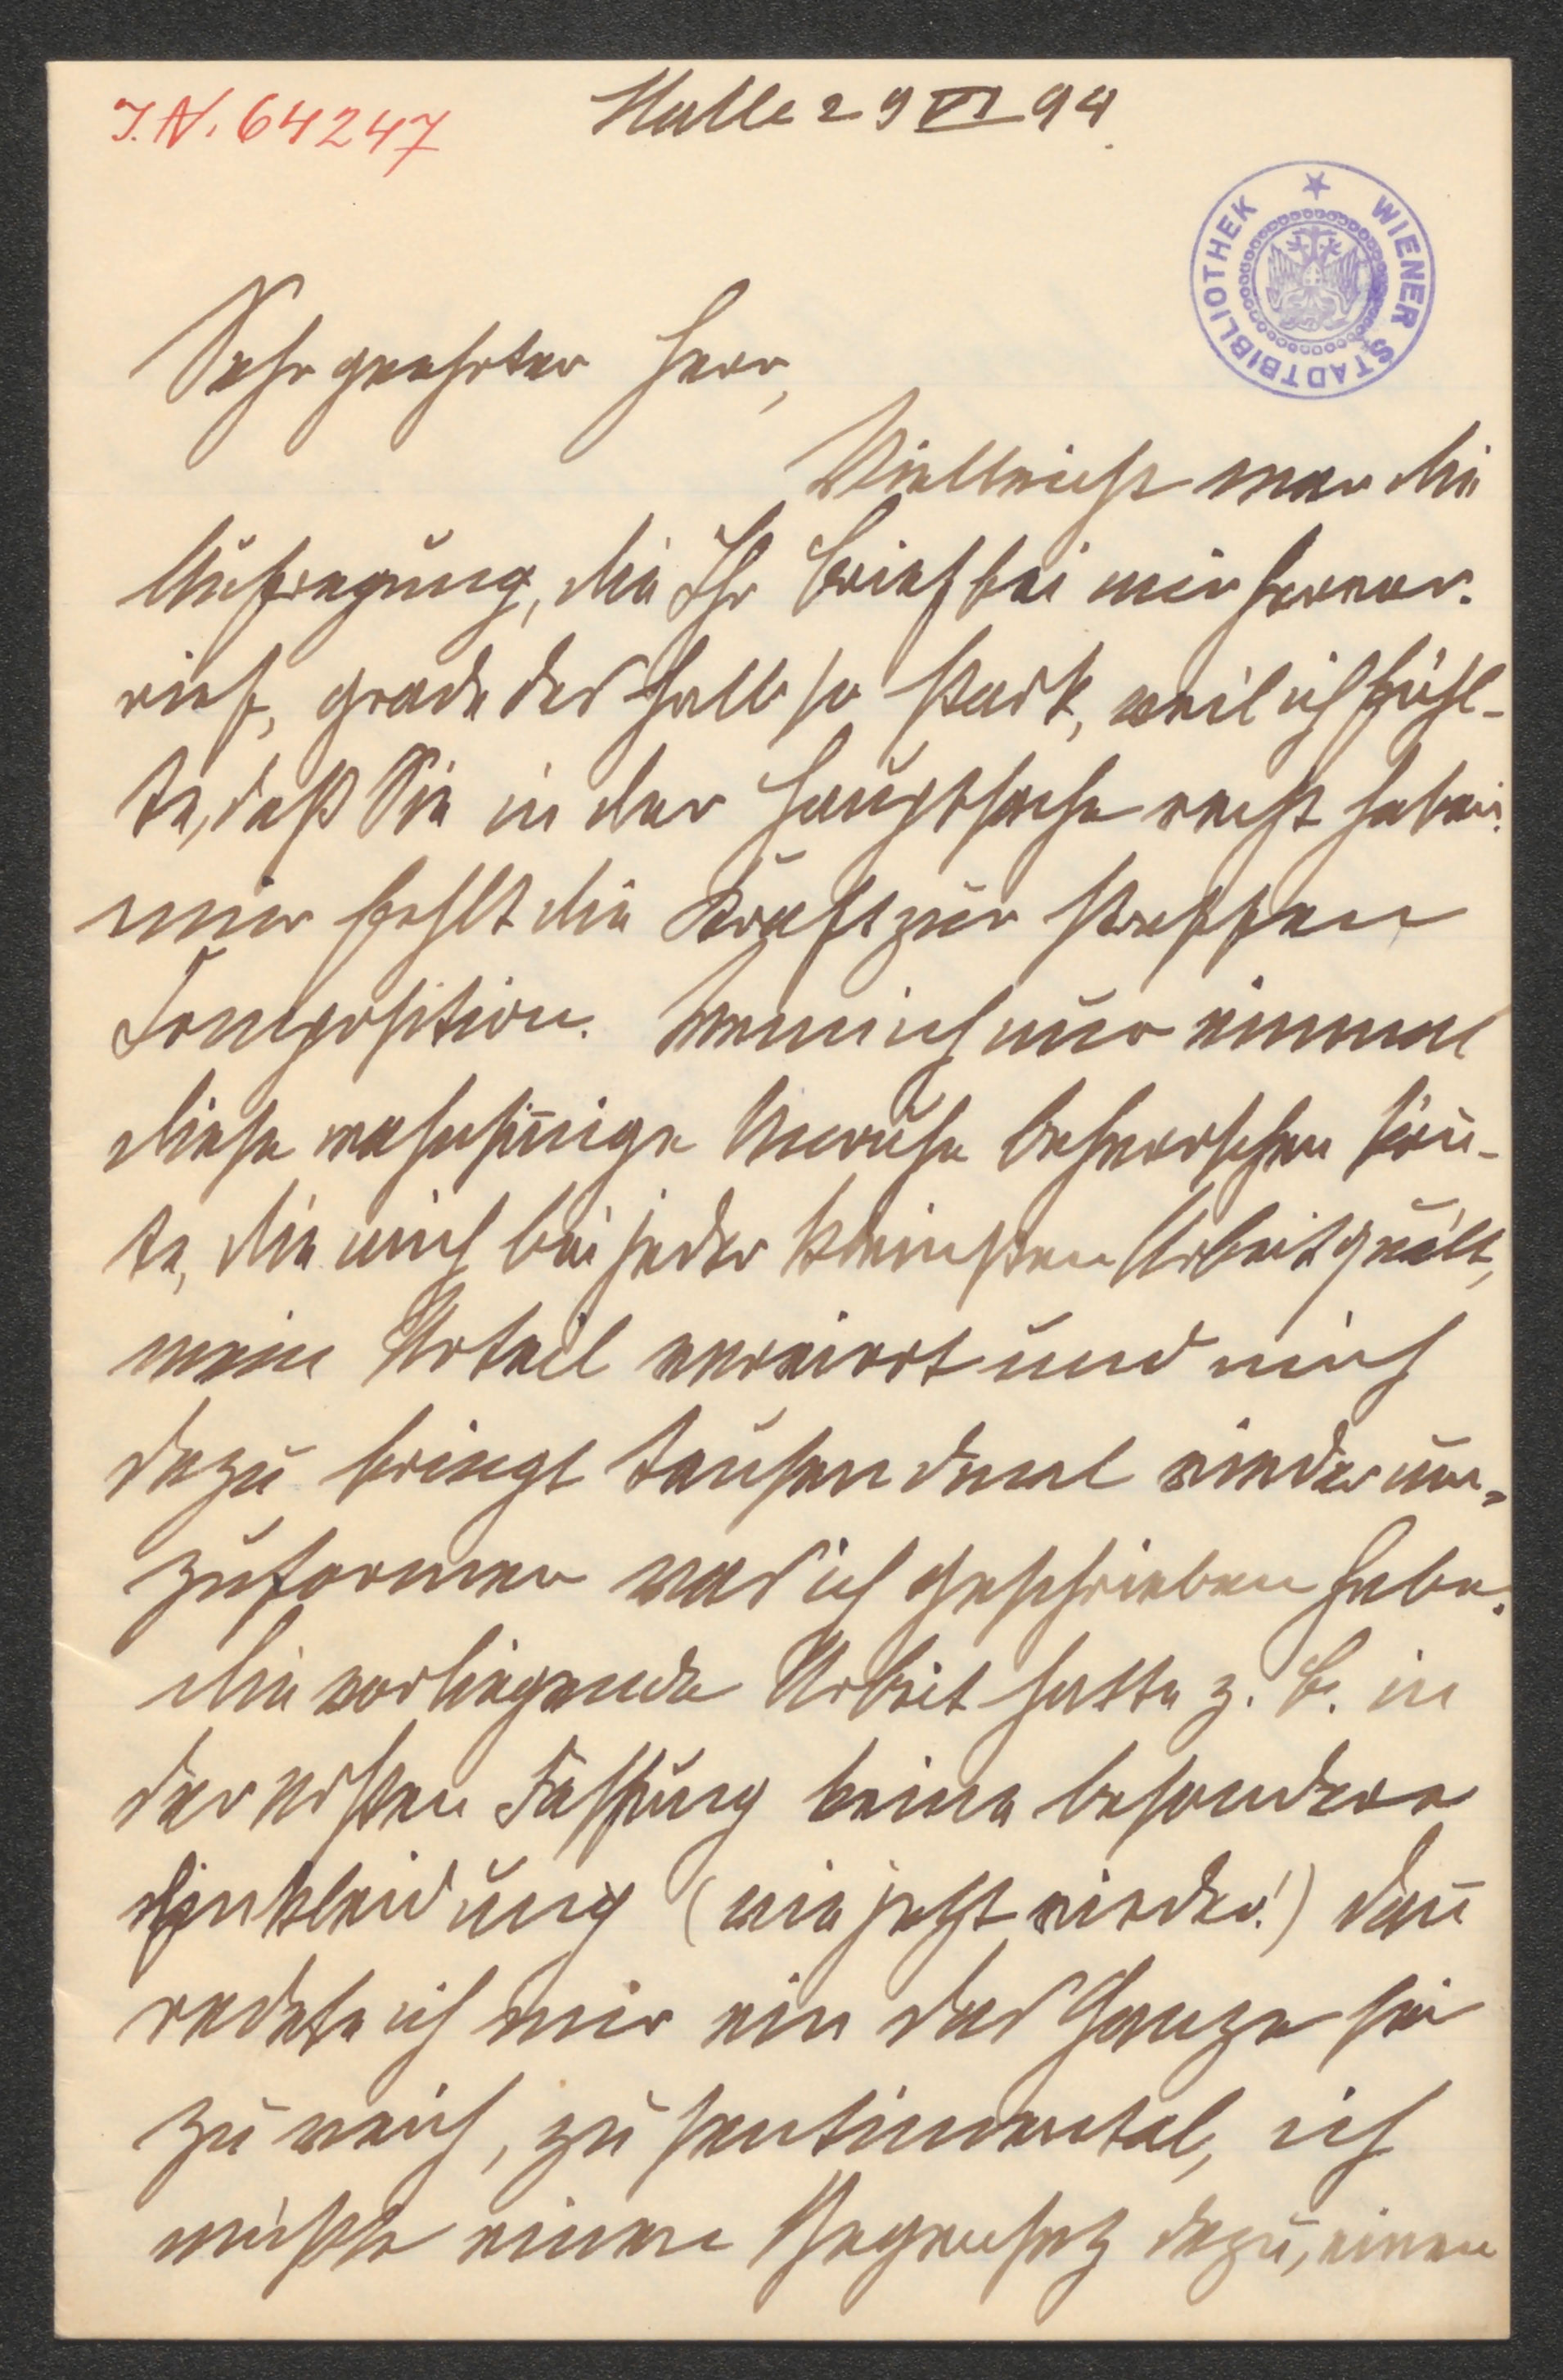 J. N. 64247
Halle 29 VI 94
WIENER STADTBIBLIOTHEK
Sehr geehrter Herr,
Vielleicht war die
Aufregung, die Ihr Brief bei mir hervor-
rief, grade deshalb so stark, weil ich fühl-
te, daß Sie in der Hauptsache recht haben:
mir fehlt die Kraft zur straffen
Composition. Wenn ich nur einmal
diese wahnsin̄ige Unruhe beherrschen kön̄-
te, die mich bei jeder kleinsten Arbeit quält,
mein Urteil verwirrt und mich
dazu bringt tausendmal wieder um-
zuformen was ich geschrieben habe.
Die vorliegende Arbeit hatte z. B. in
der ersten Fassung keine besondere
Einkleidung (wie jetzt wieder!) dan̄
redete ich mir ein das Ganze sei
zu weich, zu sentimental, ich
müßte einen Gegensatz dazu, einen